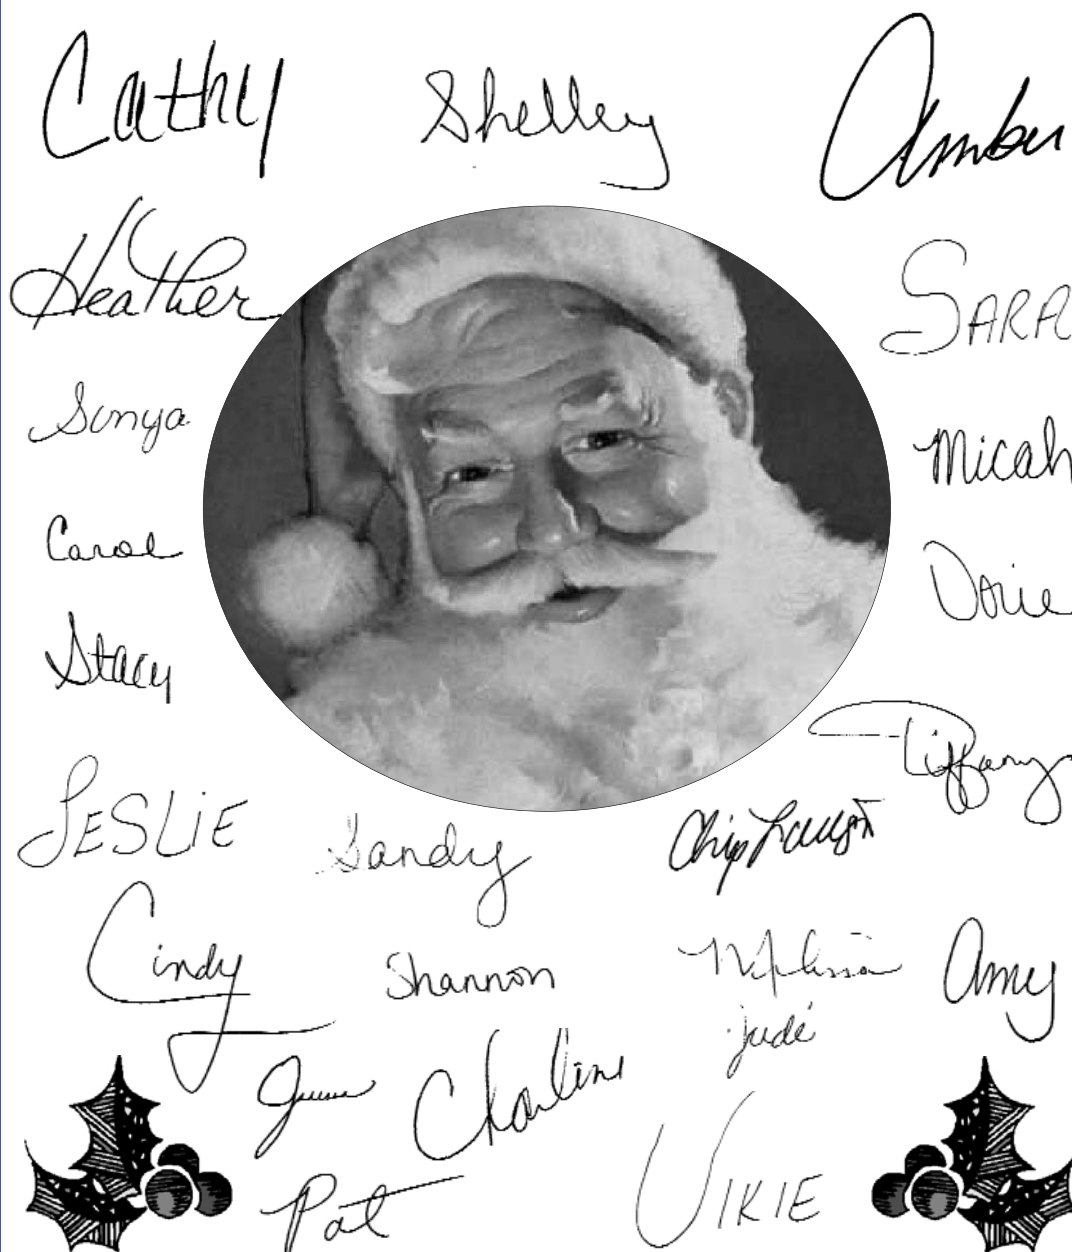 Cathy
Shelley
Amber
Heather
SARA
Sonya
Micah
Carol
Dorie
Stacy
Tiffany
LESLIE
Sandy
Chip
Cindy
Shannon
Melissa
Amy
Jude
June
Charlene
Pat
VIKIE